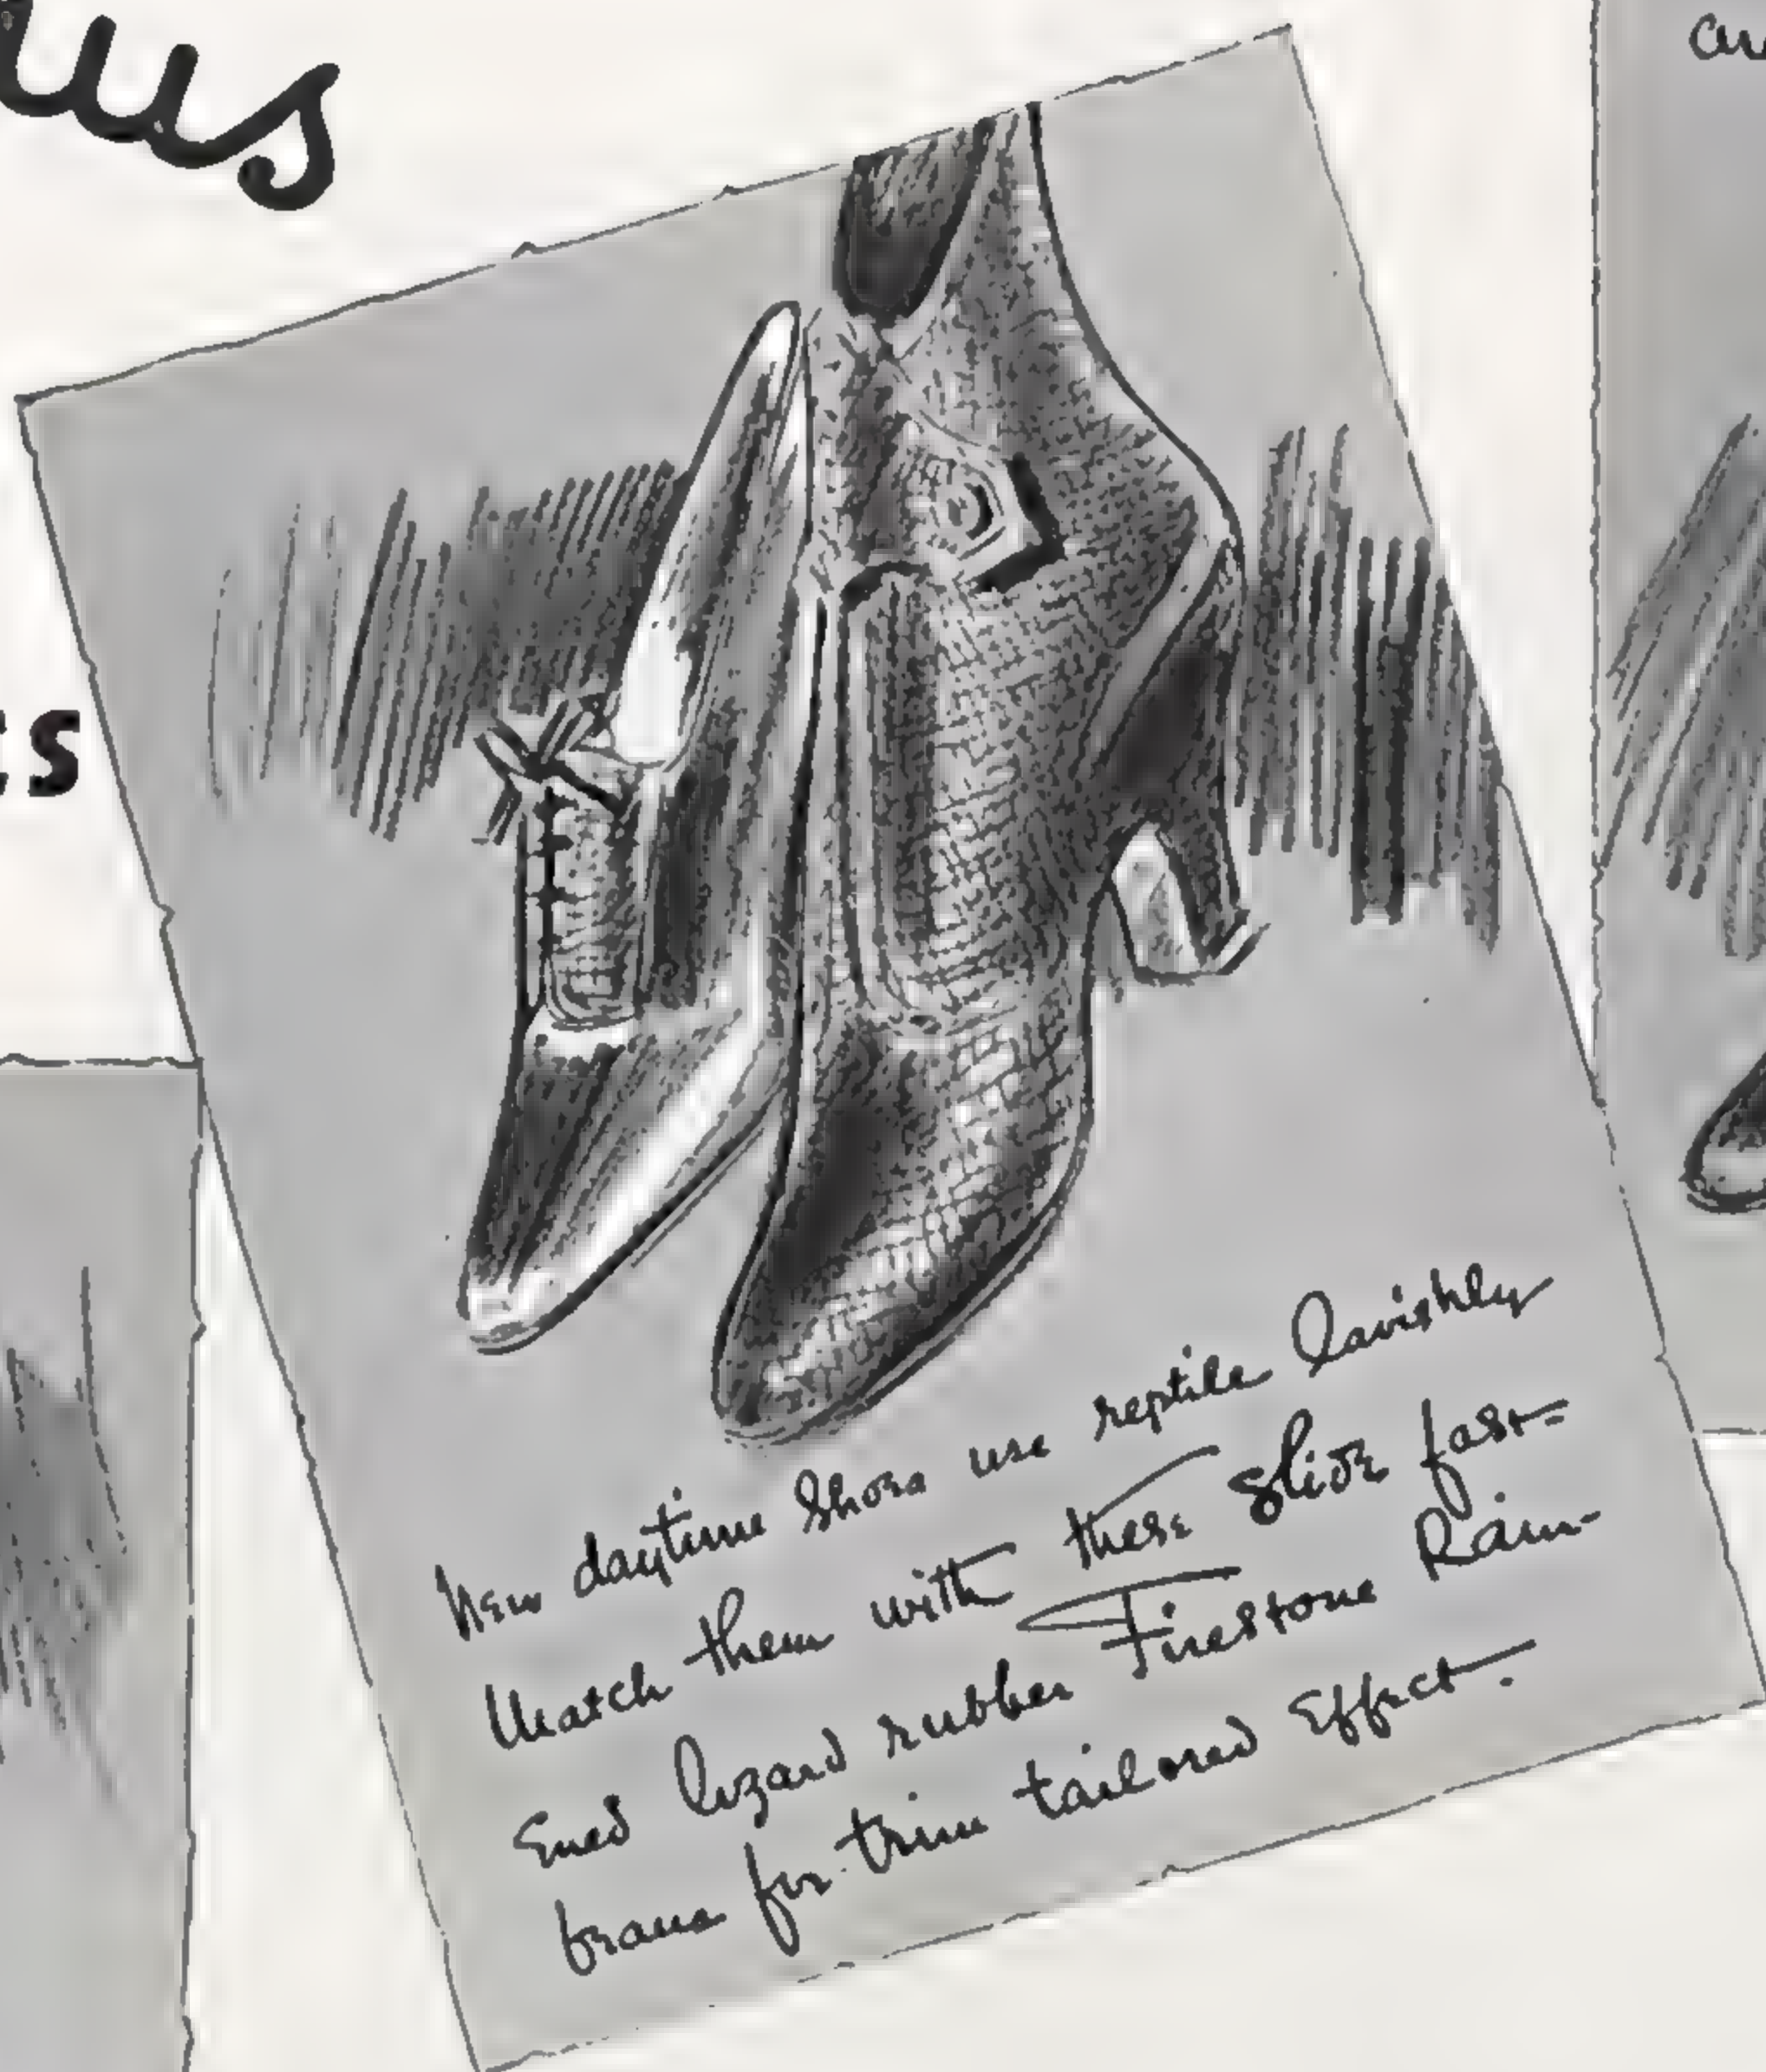 us
ts
New daytime shoes use reptile lavishly
Match them with these slide fast-
ened lizard rubber Firestone Rain-
beaus for trim tailored effect.